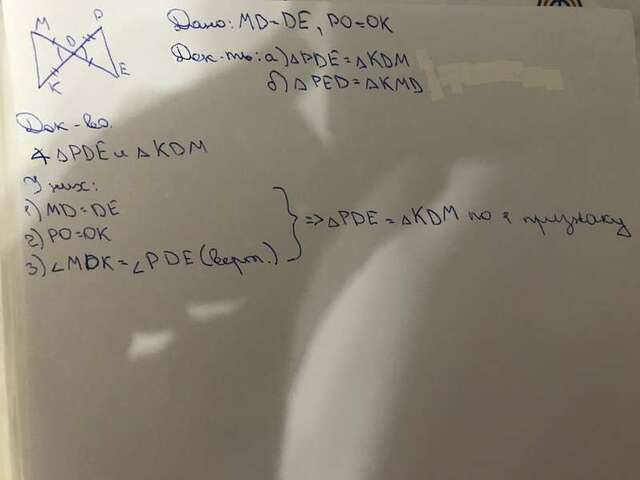 M
P
O
K
E
Дано: MD=DE, PO=OK
Док-ть: а) △PDE = △KDM
б) △PED = △KMD
Док-во.
∢ △PDE и △KDM
У них:
1) MD=DE
2) PO=OK
3) ∠MDK = ∠PDE (верт.)
=> △PDE = △KDM по 1 признаку